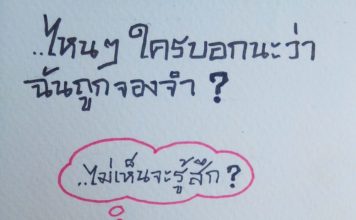 ..ไหนๆ ใครบอกนะว่า
ฉันถูกจองจำ ?
..ไม่เห็นจะรู้สึก ?